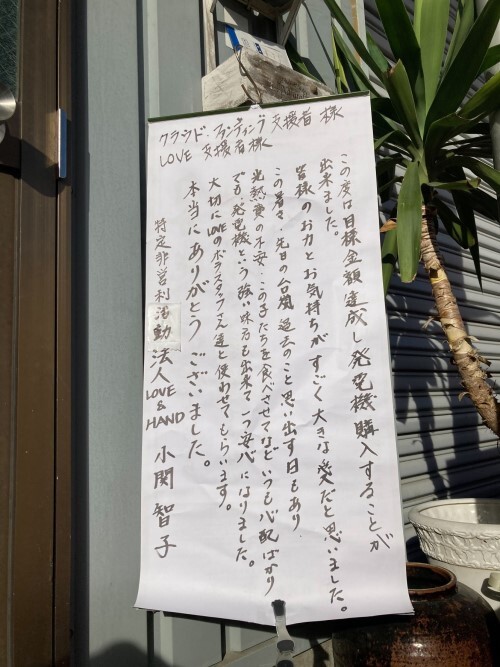 クラウドファンディング支援者様
LOVE 支援者様
この度は目標金額達成し発電機購入することが
出来ました。
皆様のお力とお気持ちがすごく大きな愛だと思いました。
この暑さ、先日の台風 過去のこと思い出す日もあり
光熱費の不安…この子たちを食べさせてなど いつも心配ばかり
でも、発電機という強い味方も出来て一つ安心になりました。
大切にLOVEのボラスタッフさん達と使わせてもらいます。
本当にありがとうございました。
特定非営利活動法人 LOVE & HAND 小関 智子